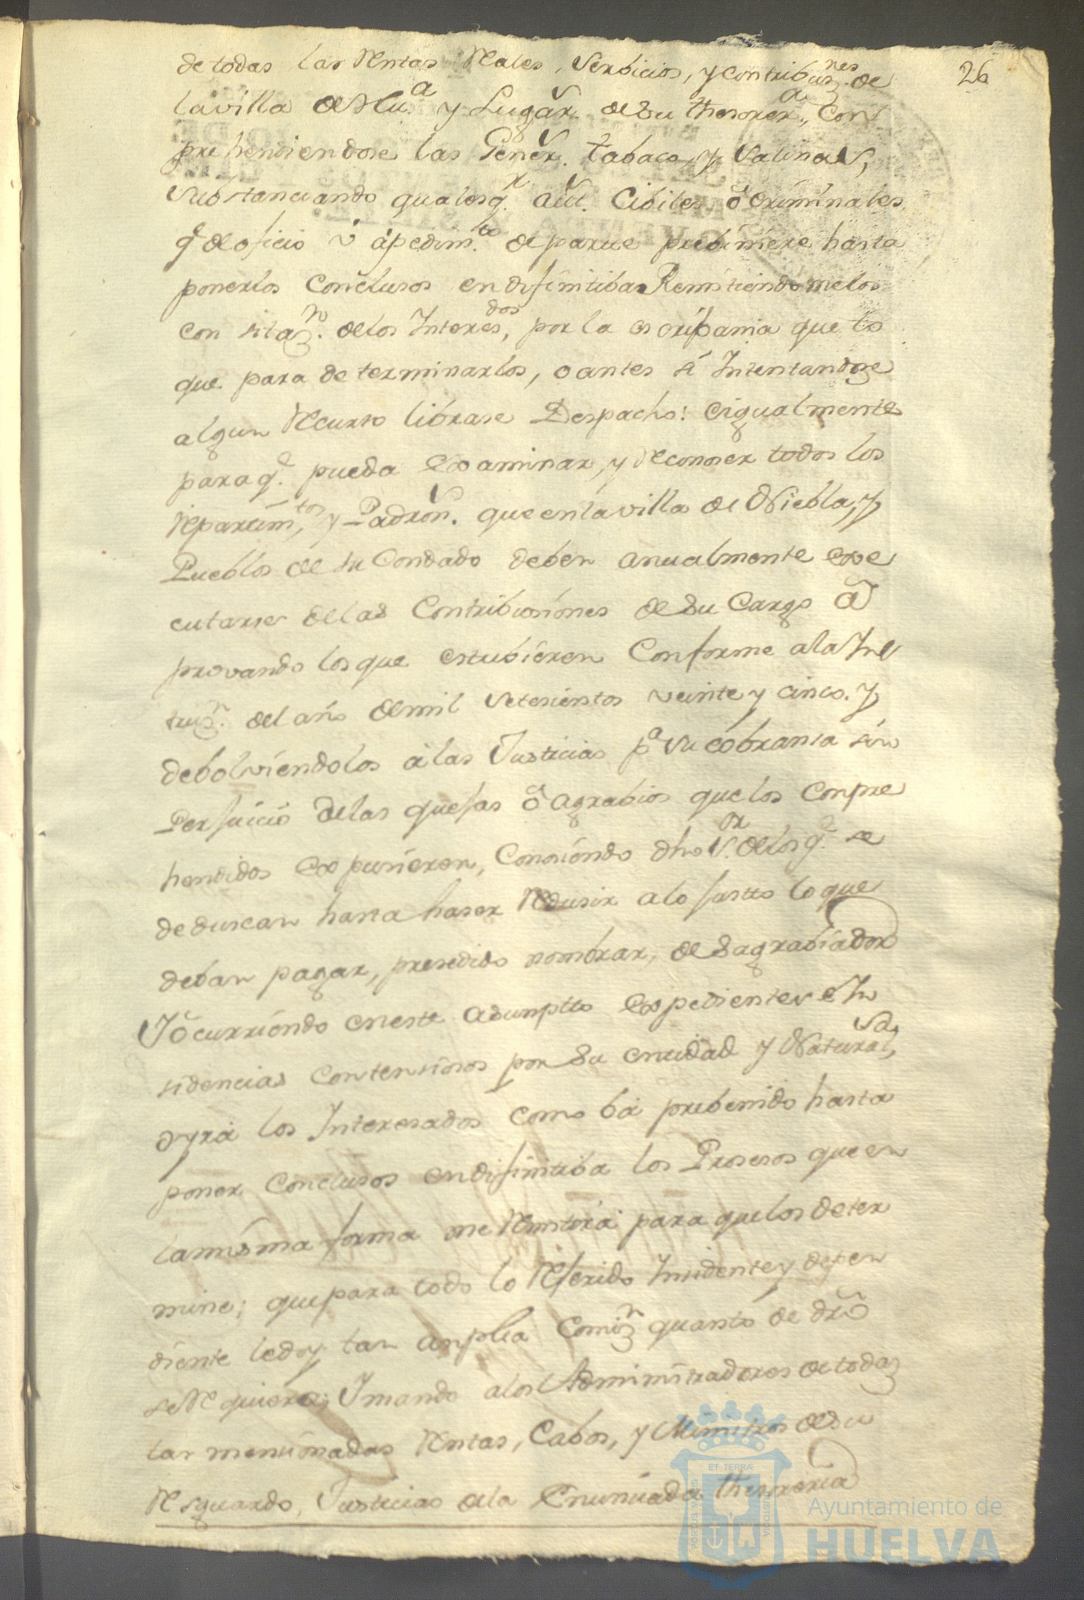 26
de todas las Rentas Reales, Serbicios, y contribuz.nes de
la villa de Hu.a y Lugar.s de su thesorer.a, Con
prehendiendose las Gener.s tabaco, y Salinas,
substanciando qualesq.r aut.s Cibiles ô Criminales
q.e de oficio û âpedim.to de partte prebiniere hasta
ponerlos Conclusos en difinitiba Remitiendomelos
con sitaz.n de los Interes.dos, por la escripania que to
que para determinarlos, o antes si Intentandose
algun Recurso librase Despacho: eigualmente
para q.e pueda Examinar, y Reconoser todos los
Repartim.tos, y Padron.s que en la villa de Niebla, y
Pueblos de su Condado deben anualmente exe
cutarse de las Contribusiones de su Cargo a
provando los que estubieren Conforme a la Ins
truz.n del año de mil setesientos veinte y cinco. y
debolviendolos a las Justicias p.a su cobransa sin
Perjuicio de las quejas ô agrabios que los Conpre
hendidos Expusieren, Conosiendo dho S.or de los q.e se
deduscan hasta haser Redusir a lo justto lo que
deban pagar, presedido nombrar, desagrabiador
Y ôcurriendo en este asumptto Expedientes e In
sidencias Contensiosos por su entidad y Natural.sa,
oyrá los Interesados como bá prebenido hasta
poner Conclusos en difinitiba los Prosesos que en
la misma forma me Remitirá para que los deter
mine; que para todo lo Referido Insidente y depen
diente le doy tan anplia Comiz.n quanto de dro
se Requiera; Y mando a los Administradores de todas
las mensionadas Rentas, Cabos, y Ministros de su
Resguardo, Justicias de la Enunsiada thesoreria
ET TERRÆ
Ayuntamiento de
HUELVA